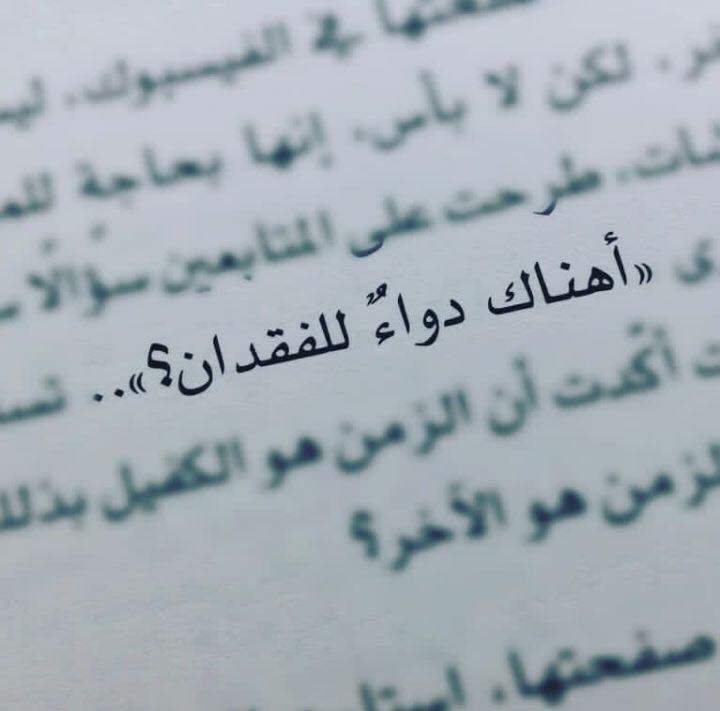 صفحتها في الفيسبوك،
لكن لا بأس، إنها بحاجة
طرحت على المتابعين سؤالًا
«أهناك دواءٌ للفقدان؟»..
أكّدت أن الزمن هو الكفيل بذلك
الزمن هو الآخر؟
صفحتها،